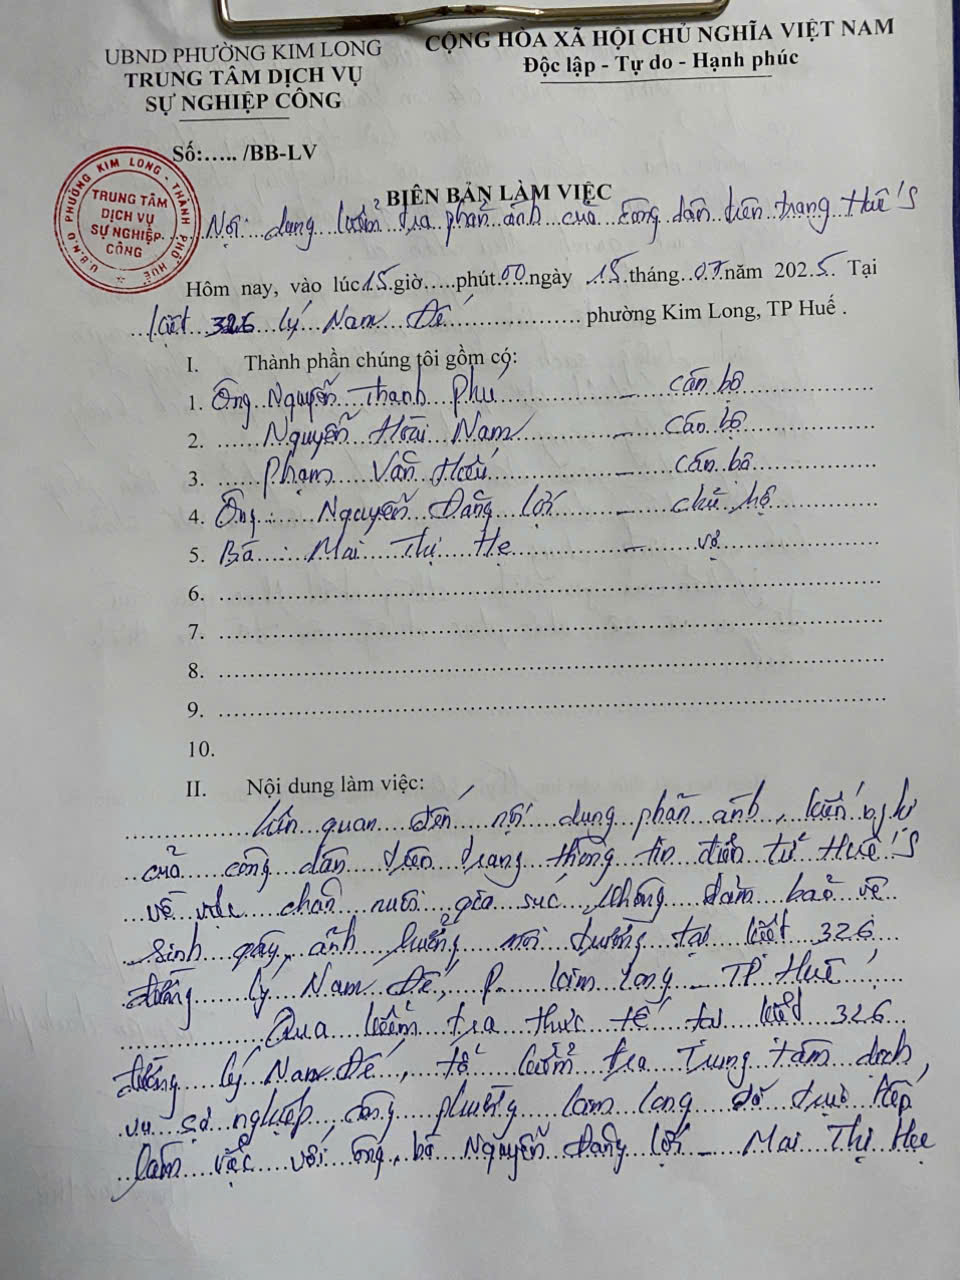 UBND PHƯỜNG KIM LONG
TRUNG TÂM DỊCH VỤ
SỰ NGHIỆP CÔNG
CỘNG HÒA XÃ HỘI CHỦ NGHĨA VIỆT NAM
Độc lập - Tự do - Hạnh phúc
Số:..... /BB-LV
U.B.N.D PHƯỜNG KIM LONG - THÀNH PHỐ HUẾ
TRUNG TÂM
DỊCH VỤ
SỰ NGHIỆP
CÔNG
BIÊN BẢN LÀM VIỆC
Nội dung kiểm tra phản ánh của công dân trên trang Huế S
Hôm nay, vào lúc 15 giờ.....phút 00 ngày 15 tháng 07 năm 2025. Tại
kiệt 326 Lý Nam Đế phường Kim Long, TP Huế .
I. Thành phần chúng tôi gồm có:
1. Ông Nguyễn Thanh Phú - cán bộ
2. Nguyễn Hoài Nam - cán bộ
3. Phạm Văn - cán bộ
4. Ông: Nguyễn Đăng Lợi - chủ hộ
5. Bà: Mai Thị Hẹ - vợ
6.
7.
8.
9.
10.
II. Nội dung làm việc:
Liên quan đến nội dung phản ánh, kiến nghị
của công dân trên trang thông tin điện tử Huế S
về việc chăn nuôi gia súc không đảm bảo vệ
sinh gây ảnh hưởng môi trường tại kiệt 326
đường Lý Nam Đế, P. Kim Long - TP Huế
Qua kiểm tra thực tế tại kiệt 326
đường Lý Nam Đế, tổ kiểm tra Trung tâm dịch
vụ sự nghiệp công phường Kim Long đã trực tiếp
làm việc với ông, bà Nguyễn Đăng Lợi - Mai Thị Hẹ